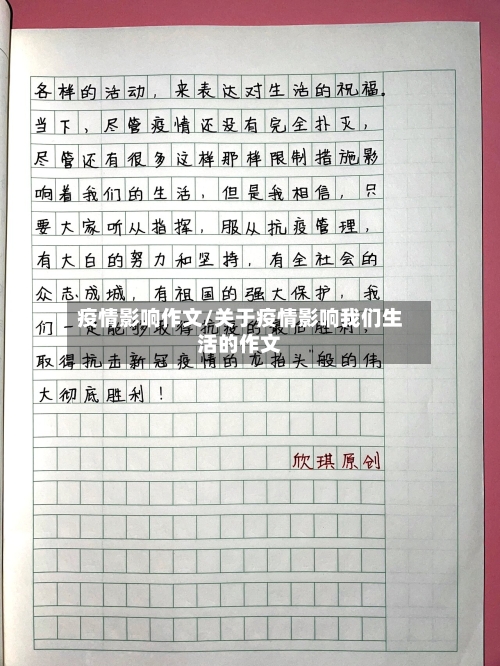 各样的活动，来表达对生活的祝福。
当下，尽管疫情还没有完全扑灭，
尽管还有很多这样那样限制措施影
响着我们的生活，但是我相信，只
要大家听从指挥，服从抗疫管理，
有大白的努力和坚持，有全社会的
众志成城，有祖国的强大保护，我
们一定能够取得抗疫的最后胜利，
疫情影响作文/关于疫情影响我们生
活的作文
取得抗击新冠疫情的龙抬头般的伟
大彻底胜利！
欣琪原创